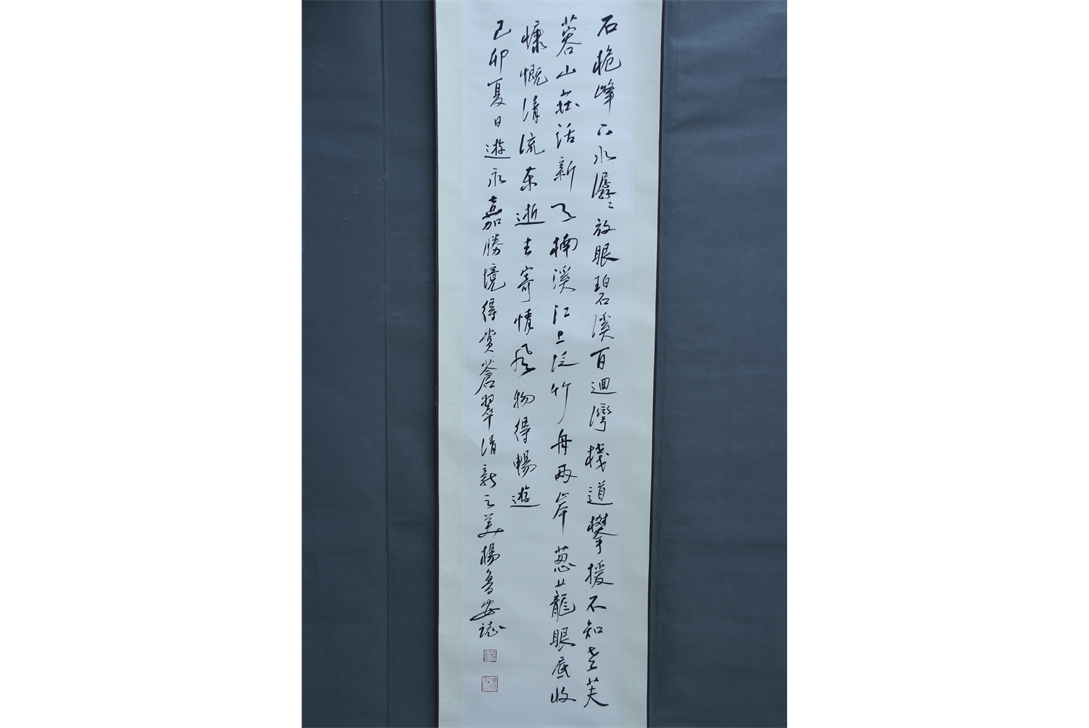 石桅峰下水潺〻放眼碧溪百迴灣棧道攀援不知老芙
蓉山莊話新天楠溪江上泛竹舟兩岸蔥蘢眼底收
慷慨清流東逝去寄情風物得暢遊
己卯夏日遊永嘉勝境得賞蒼翠清新之美楊魯安誌